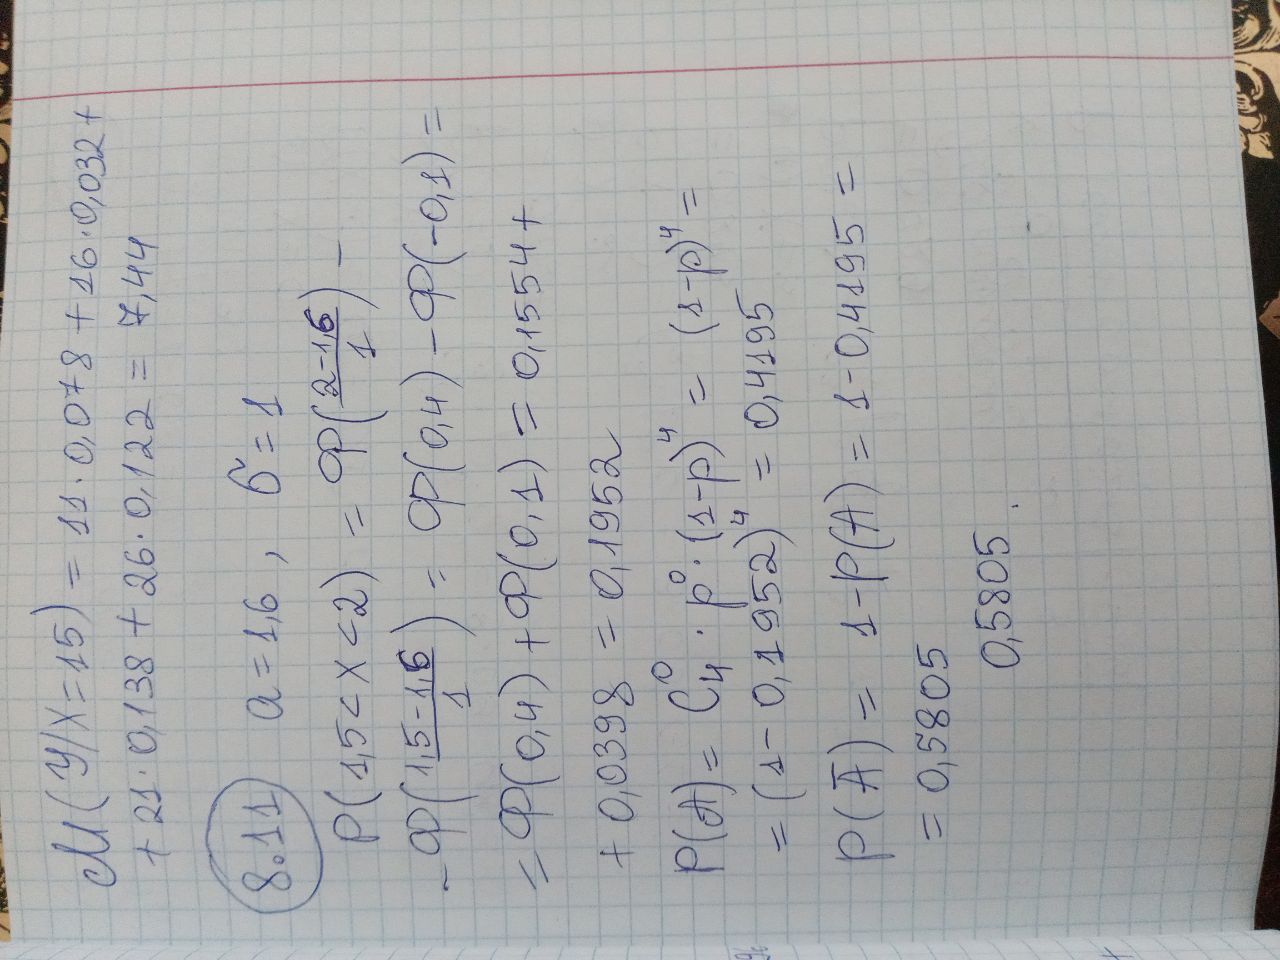 М(У/Х=15) = 11·0,078+16·0,032+
+21·0,138+26·0,122 = 7,44
8.11 a=1,6, σ=1
P(1,5<X<2) = Ф((2-1,6)/1) -
-Ф((1,5-1,6)/1) = Ф(0,4)-Ф(-0,1)=
=Ф(0,4)+Ф(0,1)=0,1554+
+0,0398=0,1952
P(A)= C₄⁰·p⁰·(1-p)⁴ = (1-p)⁴=
=(1-0,1952)⁴ = 0,4195
P(Ā) = 1-P(A) = 1-0,4195 =
= 0,5805
0,5805.